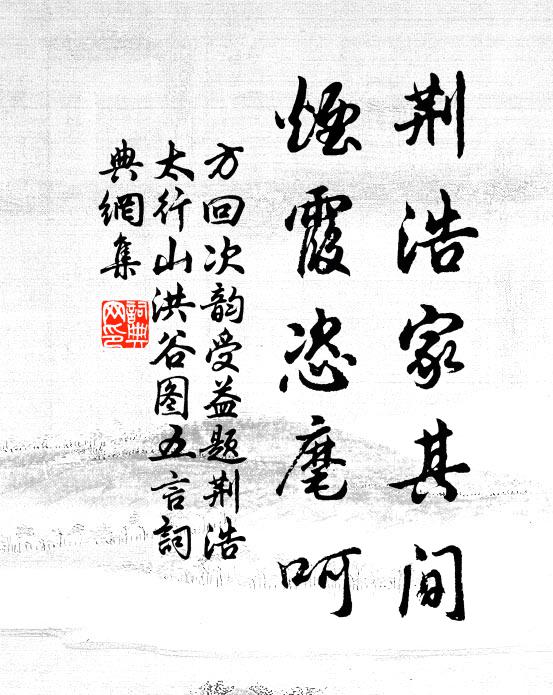 荆浩家其间
煙霞恣麾呵
方回次韵受益题荆浩
太行山洪谷图五言詞
典網集
詞典网印